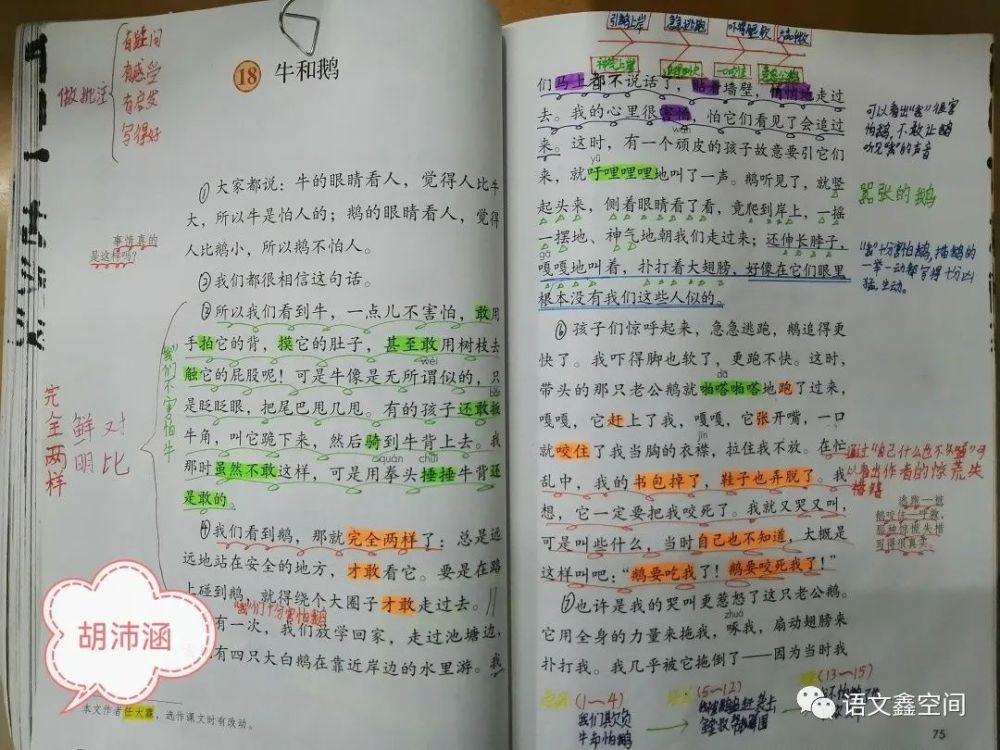 做批注
有疑问
有感受
有启发
写得好
18 牛和鹅
①大家都说：牛的眼睛看人，觉得人比牛
大，所以牛是怕人的；鹅的眼睛看人，觉得
人比鹅小，所以鹅不怕人。
事情真的
是这样吗？
②我们都很相信这句话。
③所以我们看到牛，一点儿不害怕，敢用
手拍它的背，摸它的肚子，甚至敢用树枝去
wèi
触它的屁股呢！可是牛像是无所谓似的，只
是眨眨眼，把尾巴甩几甩。有的孩子还敢扳
牛角，叫它跪下来，然后骑到牛背上去。我
quán chuí
那时虽然不敢这样，可是用拳头捶捶牛背还
是敢的。
"我们"不害怕牛
完全两样
鲜明对比
④我们看到鹅，那就完全两样了：总是远
远地站在安全的地方，才敢看它。要是在路
上碰到鹅，就得绕个大圈子才敢走过去。
"我们"十分害怕鹅
有一次，我们放学回家，走过池塘边，
有四只大白鹅在靠近岸边的水里游。我
胡沛涵
本文作者任大霖，选作课文时有改动。
引鹅上岸
急急逃跑
神气上岸
们马上都不说话了，贴着墙壁，悄悄地走过
去。我的心里很害怕，怕它们看见了会追过
wán
来。这时，有一个顽皮的孩子故意要引它们
yū
来，就吁哩哩哩地叫了一声。鹅听见了，就竖
起头来，侧着眼睛看了看，竟爬到岸上，一摇
一摆地、神气地朝我们走过来；还伸长脖子，
gā
嘎嘎地叫着，扑打着大翅膀，好像在它们眼里
根本没有我们这些人似的。
可以看出"我"很害
怕鹅，不敢让鹅
听见"我"的声音
嚣张的鹅
"我"十分害怕鹅，描鹅的
一举一动都写得十分凶
猛、生动。
⑥孩子们惊呼起来，急急逃跑，鹅追得更
快了。我吓得脚也软了，更跑不快。这时，
dā
带头的那只老公鹅就啪嗒啪嗒地跑了过来，
嘎嘎，它赶上了我，嘎嘎，它张开嘴，一口
jīn
就咬住了我当胸的衣襟，拉住我不放。在忙
乱中，我的书包掉了，鞋子也弄脱了。我
想，它一定要把我咬死了。我就又哭又叫，
可是叫些什么，当时自己也不知道，大概是
这样叫吧："鹅要吃我了！鹅要咬死我了！"
通过"自己什么也不知道"可
以看出作者的惊荒失
措
⑦也许是我的哭叫更惹怒了这只老公鹅。
zhuó
它用全身的力量来拖我，啄我，扇动翅膀来
扑打我。我几乎被它拖倒了——因为当时我
(1～4)
我们欺负
牛却怕鹅
(5～12)
(13～15)
语文鑫空间
75